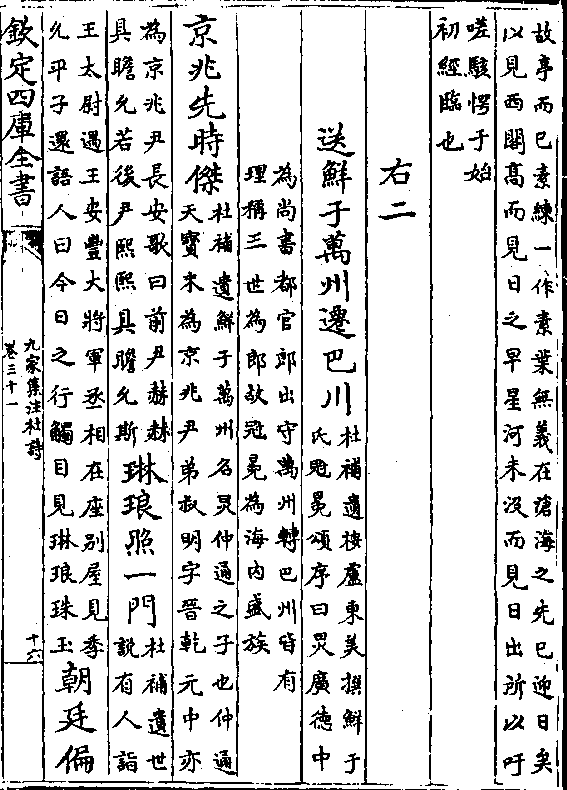 故亭而已素練一作素葉無義在滄海之先已迎日矣
以見西閣高而見日之早星河未沒而見日出所以吁
嗟駭愕于始
初經臨也
右二
送鮮于萬州遷巴川
杜補遺按盧東美撰鮮于
氏冠冕頌序曰炅廣德中
為尚書都官郎出守萬州轉巴州皆有
理稱三世為郎故冠冕為海内盛族
京兆先時傑
杜補遺鮮于萬州名炅仲通之子也仲通
天寶末為京兆尹弟叔明字晉乾元中亦
為京兆尹長安歌曰前尹赫赫
具瞻允若後尹熙熙具瞻允斯
琳琅照一門
杜補遺世
說有人詣
王太尉遇王安豐大將軍丞相在座别屋見季
允平子還語人曰今日之行觸目見琳琅珠玉
朝廷偏
欽定四庫全書
九家集注杜詩
卷三十一
十六